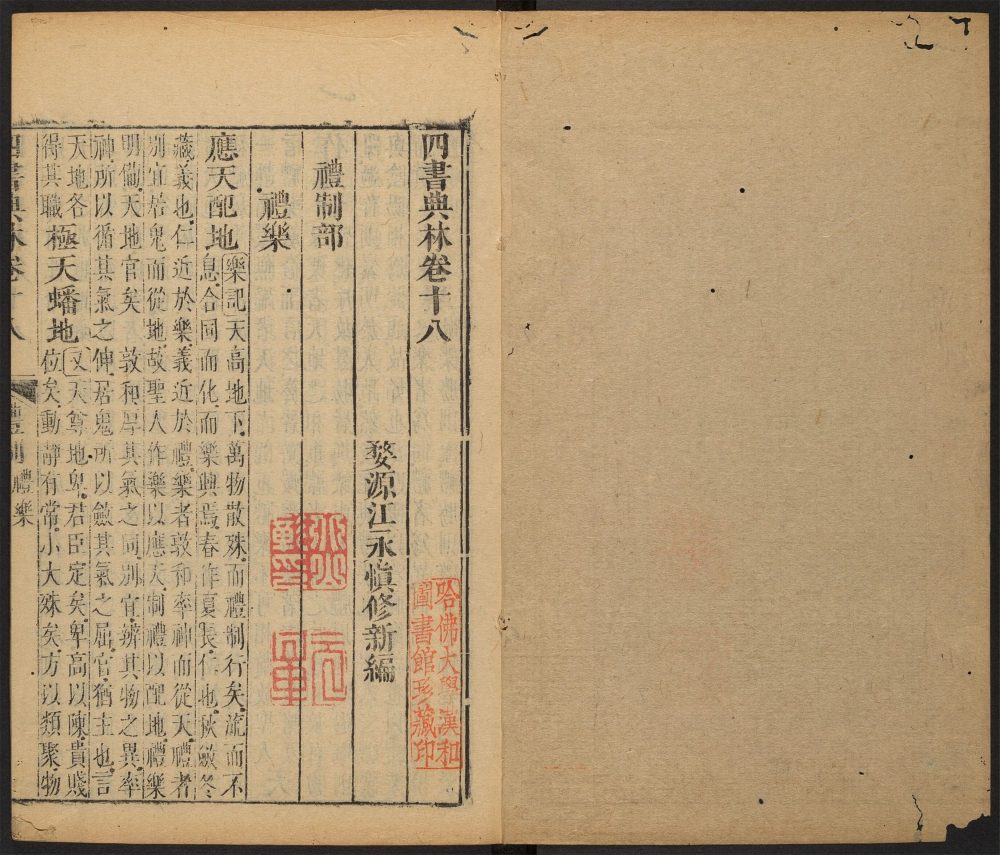 四書典林卷十八
婺源江永慎修新編
禮制部
禮樂
應天配地樂記天高地下萬物散殊而禮制行矣流而不
息合同而化而樂興焉春作夏長仁也秋斂冬
藏義也仁近於樂義近於禮樂者敦和率神而從天禮者
別宜居鬼而從地故聖人作樂以應天制禮以配地禮樂
明備天地官矣 敦和厚其氣之同別宜辨其物之異率
神所以循其氣之伸居鬼所以斂其氣之屈官猶主也言
天地各
得其職極天蟠地又天尊地卑君臣定矣卑高以陳貴賤
位矣動靜有常小大殊矣方以類聚物
四書典林卷十八
禮制 禮樂
哈佛大學漢和
圖書館珍藏印